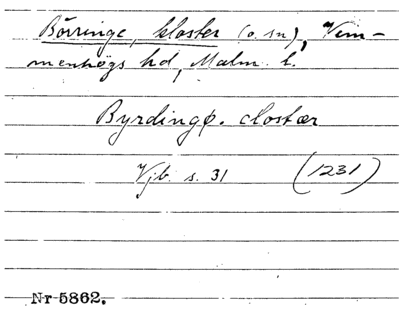 Börringe, kloster (o. sn), Vem-
menhögs hd, Malm. l.
Byrdingø. clostær
Vjb. s. 31 (1231)
Nr 5862.